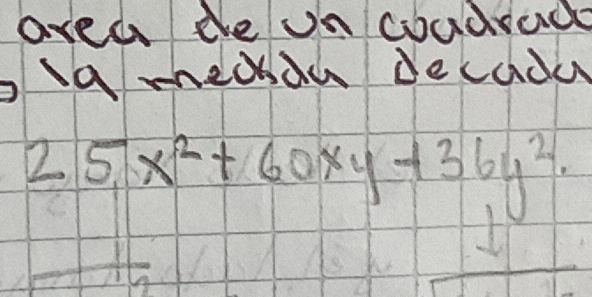 area de un cuadrado
la medida de cada
25x² + 60xy + 36y².